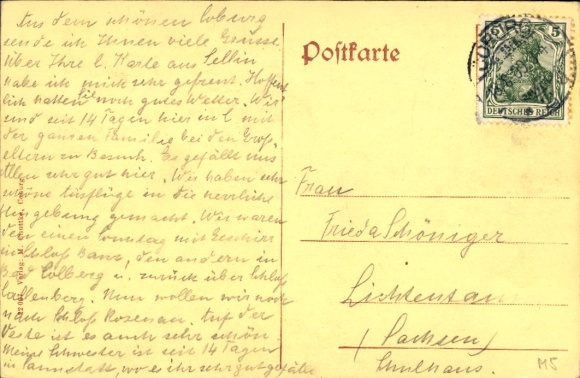 Aus dem schönen Coburg
sende ich Ihnen viele Grüsse
über Ihre l. Karte aus Sellin
habe ich mich sehr gefreut. Hoffent
lich hatten Sie noch gutes Wetter. Wir
sind seit 14 Tagen hier in C mit
der ganzen Familie bei den Groß-
eltern zu Besuch. Es gefällt uns
Allen sehr gut hier. Wir haben sehr
schöne Ausflüge in die herrliche
Umgebung gemacht. Wir waren
den einen Sonntag mit
in Schloß Banz, den andern in
Bad Colberg u. zurück über Schloß
Callenberg. Nun wollen wir noch
nach Schloß Rosenau. Auf der
Veste ist es auch sehr schön.
Meine Schwester ist seit 14 Tagen
in Cannstatt, wo es ihr sehr gut gefällt
Postkarte
COBURG
5
DEUTSCHES REICH
Frau
Frieda Schöniger
Lichtentanne
(Sachsen)
Schulhaus.
M5